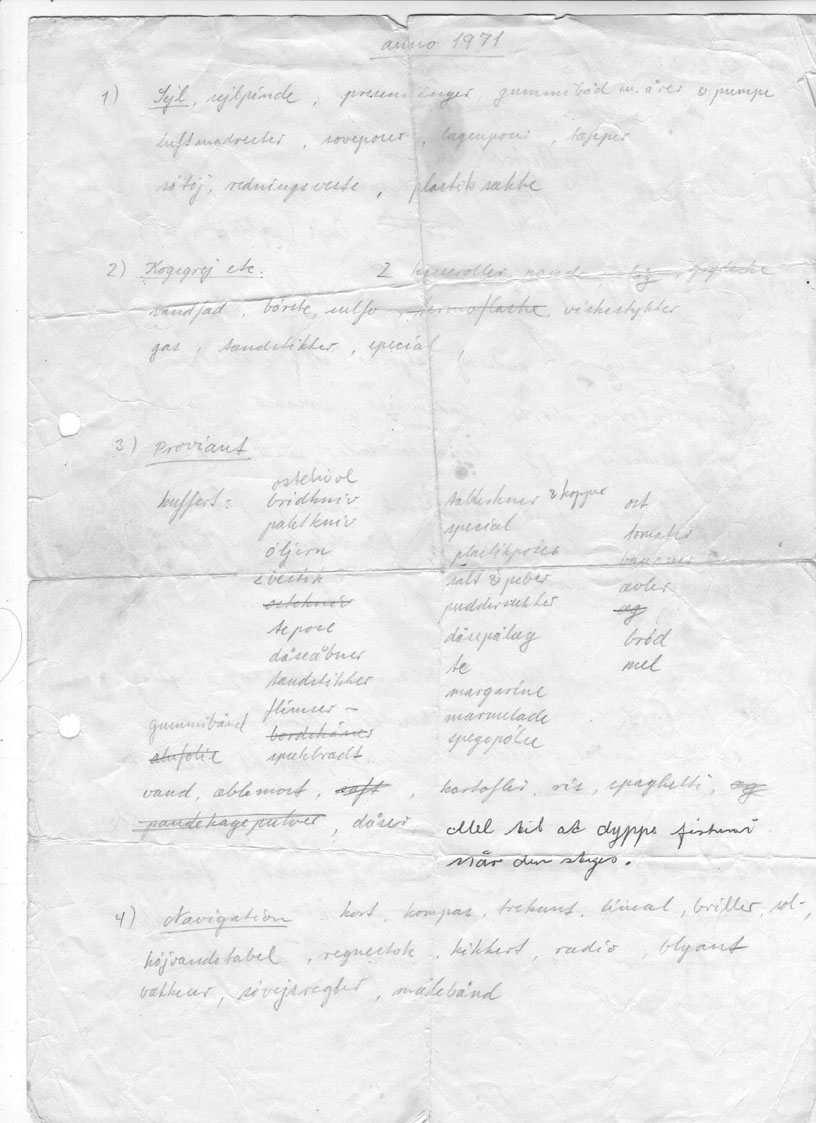 anno 1971
1) Sejl, sejlpinde, presenninger, gummibåd m. årer & pumpe
luftmadrasser, soveposer, lagenposer, tæpper
søtøj, redningsveste, plastiksække
2) Kogegrej etc. 2 kasseroller, pande, låg,
vandfad, børste, sulfo, termoflaske, viskestykker
gas, tændstikker, special,
3) Proviant
kuffert:
ostehøvl
brødkniv
paletkniv
øljern
ostekniv
tepose
dåseåbner
tændstikker
gummibånd
alufolie
bordskåner
spækbrædt
tallerkner & kopper
special
plastikposer
salt & peber
dåsepålæg
te
margarine
marmelade
spegepølse
ost
tomater
bananer
æbler
æg
brød
mel
vand, æblemost, saft, kartofler, ris, spaghetti, æg
pandekagepulver, dåser,
Mel til at dyppe fisken i
når den steges.
4) Navigation kort, kompas, trekant, lineal, briller, sol-,
højvandstabel, regnestok, kikkert, radio, blyant
vækkeur, søvejsregler, målebånd